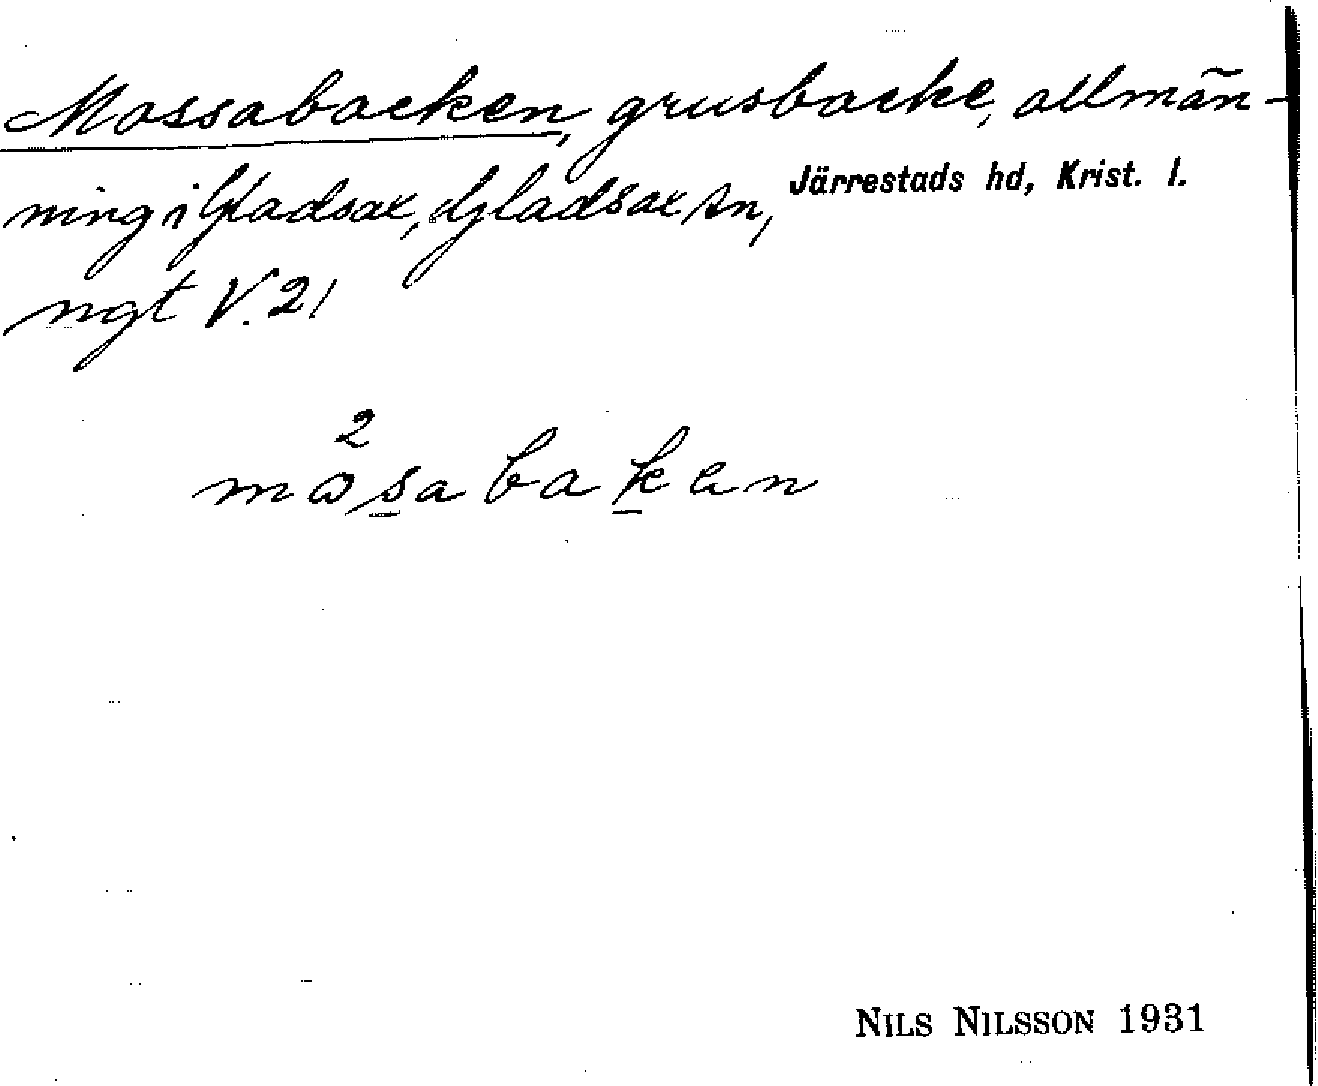 Mossabacken, grusbacke, allmän-
ning i Gladsax, Gladsax sn, Järrestads hd, Krist. l.
ngt V. 21
2
måsabaken
NILS NILSSON 1931